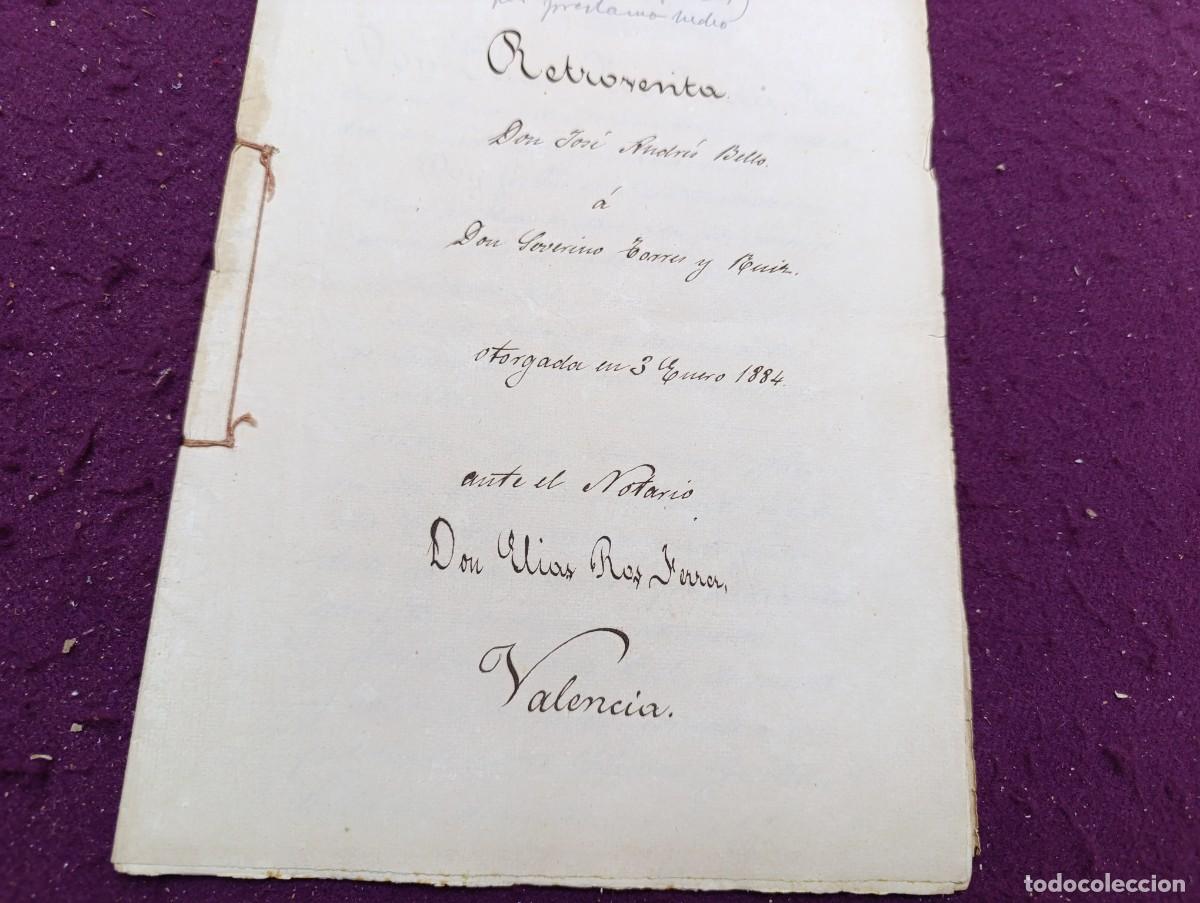 por prestamo
Retroventa.
Don José Andrés Bello.
á
Don Severino Torres y Ruiz.
otorgada en 3 Enero 1884.
ante el Notario
Don Elias Ros Ferrer,
Valencia.
todocoleccion